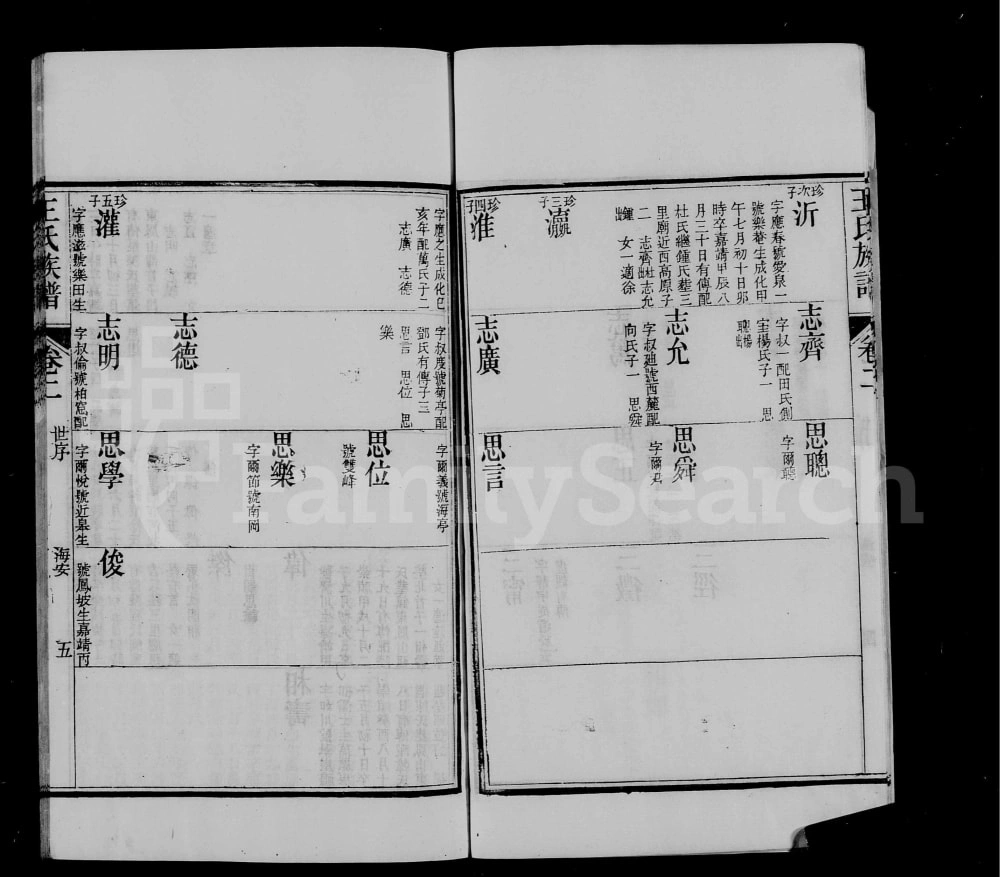 王氏族譜
卷二
珍次子
沂
字應春號愛泉一
號樂菴生成化甲
午七月初十日卯
時卒嘉靖甲辰八
月三十日有傳配
杜氏繼鍾氏葬三
里廟近西高原子
二 志齊杜出志允
鍾出 女一適徐
珍三子
瀛
珍四子
淮
志齊
字叔一配田氏側
室楊氏子一 思
聰楊出
志允
字叔廸號西麓配
向氏子一 思舜
志廣
思聰
字爾聰
思舜
字爾
思言
字應之生成化巳
亥年配萬氏子二
志廣 志德
珍五子
灌
字應遊號樂田生
字叔度號菊亭配
鄧氏有傳子三
思言 思位 思
樂
志德
志明
字叔倫號柏窓配
字爾義號海亭
思位
號雙峰
思樂
字爾節號南岡
思學
字爾悅號近臯生
俊
號鳳坡生嘉靖丙
王氏族譜
卷二
世序
海安
五
FamilySearch